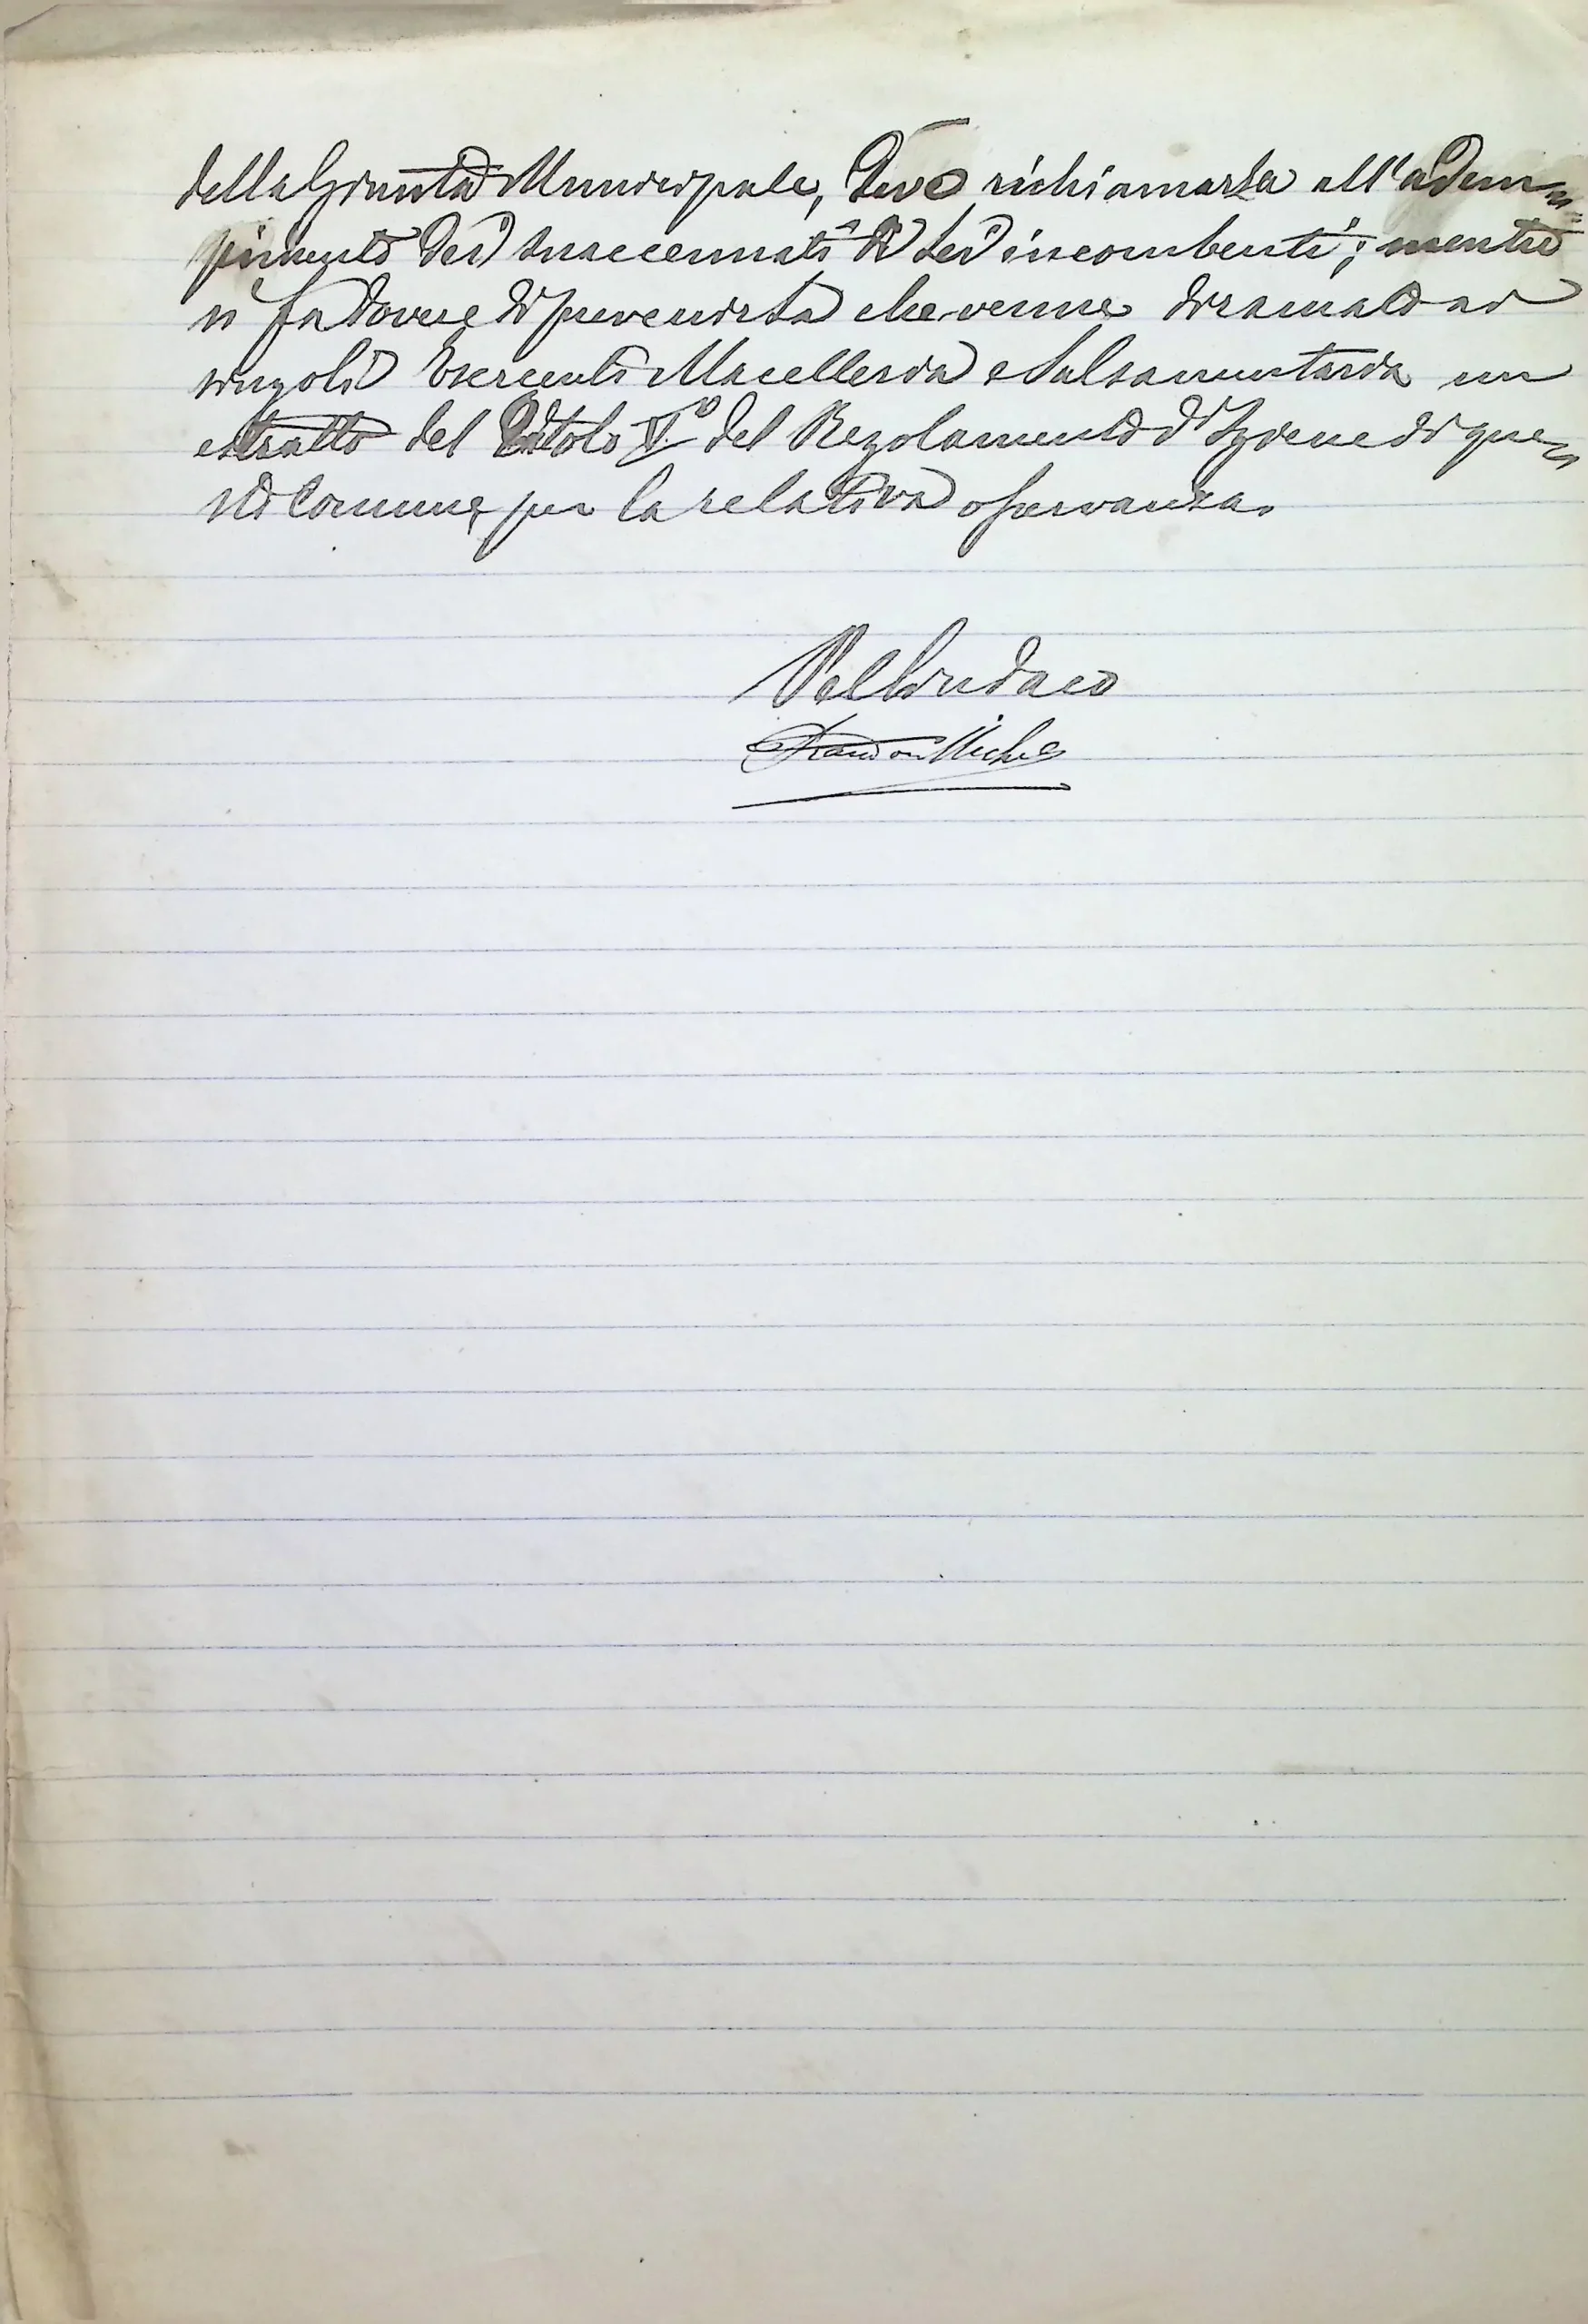 della Giunta Municipale, devo richiamarla all'adem-
pimento dei suaccennati di Lei incombenti; mentre
si fa dovere di prevenirla che venne diramato ai
singoli Esercenti Macelleria e Salsamentaria un
estratto del Titolo V° del Regolamento d'Igiene di que-
sto Comune, per la relativa osservanza.
Pel Sindaco